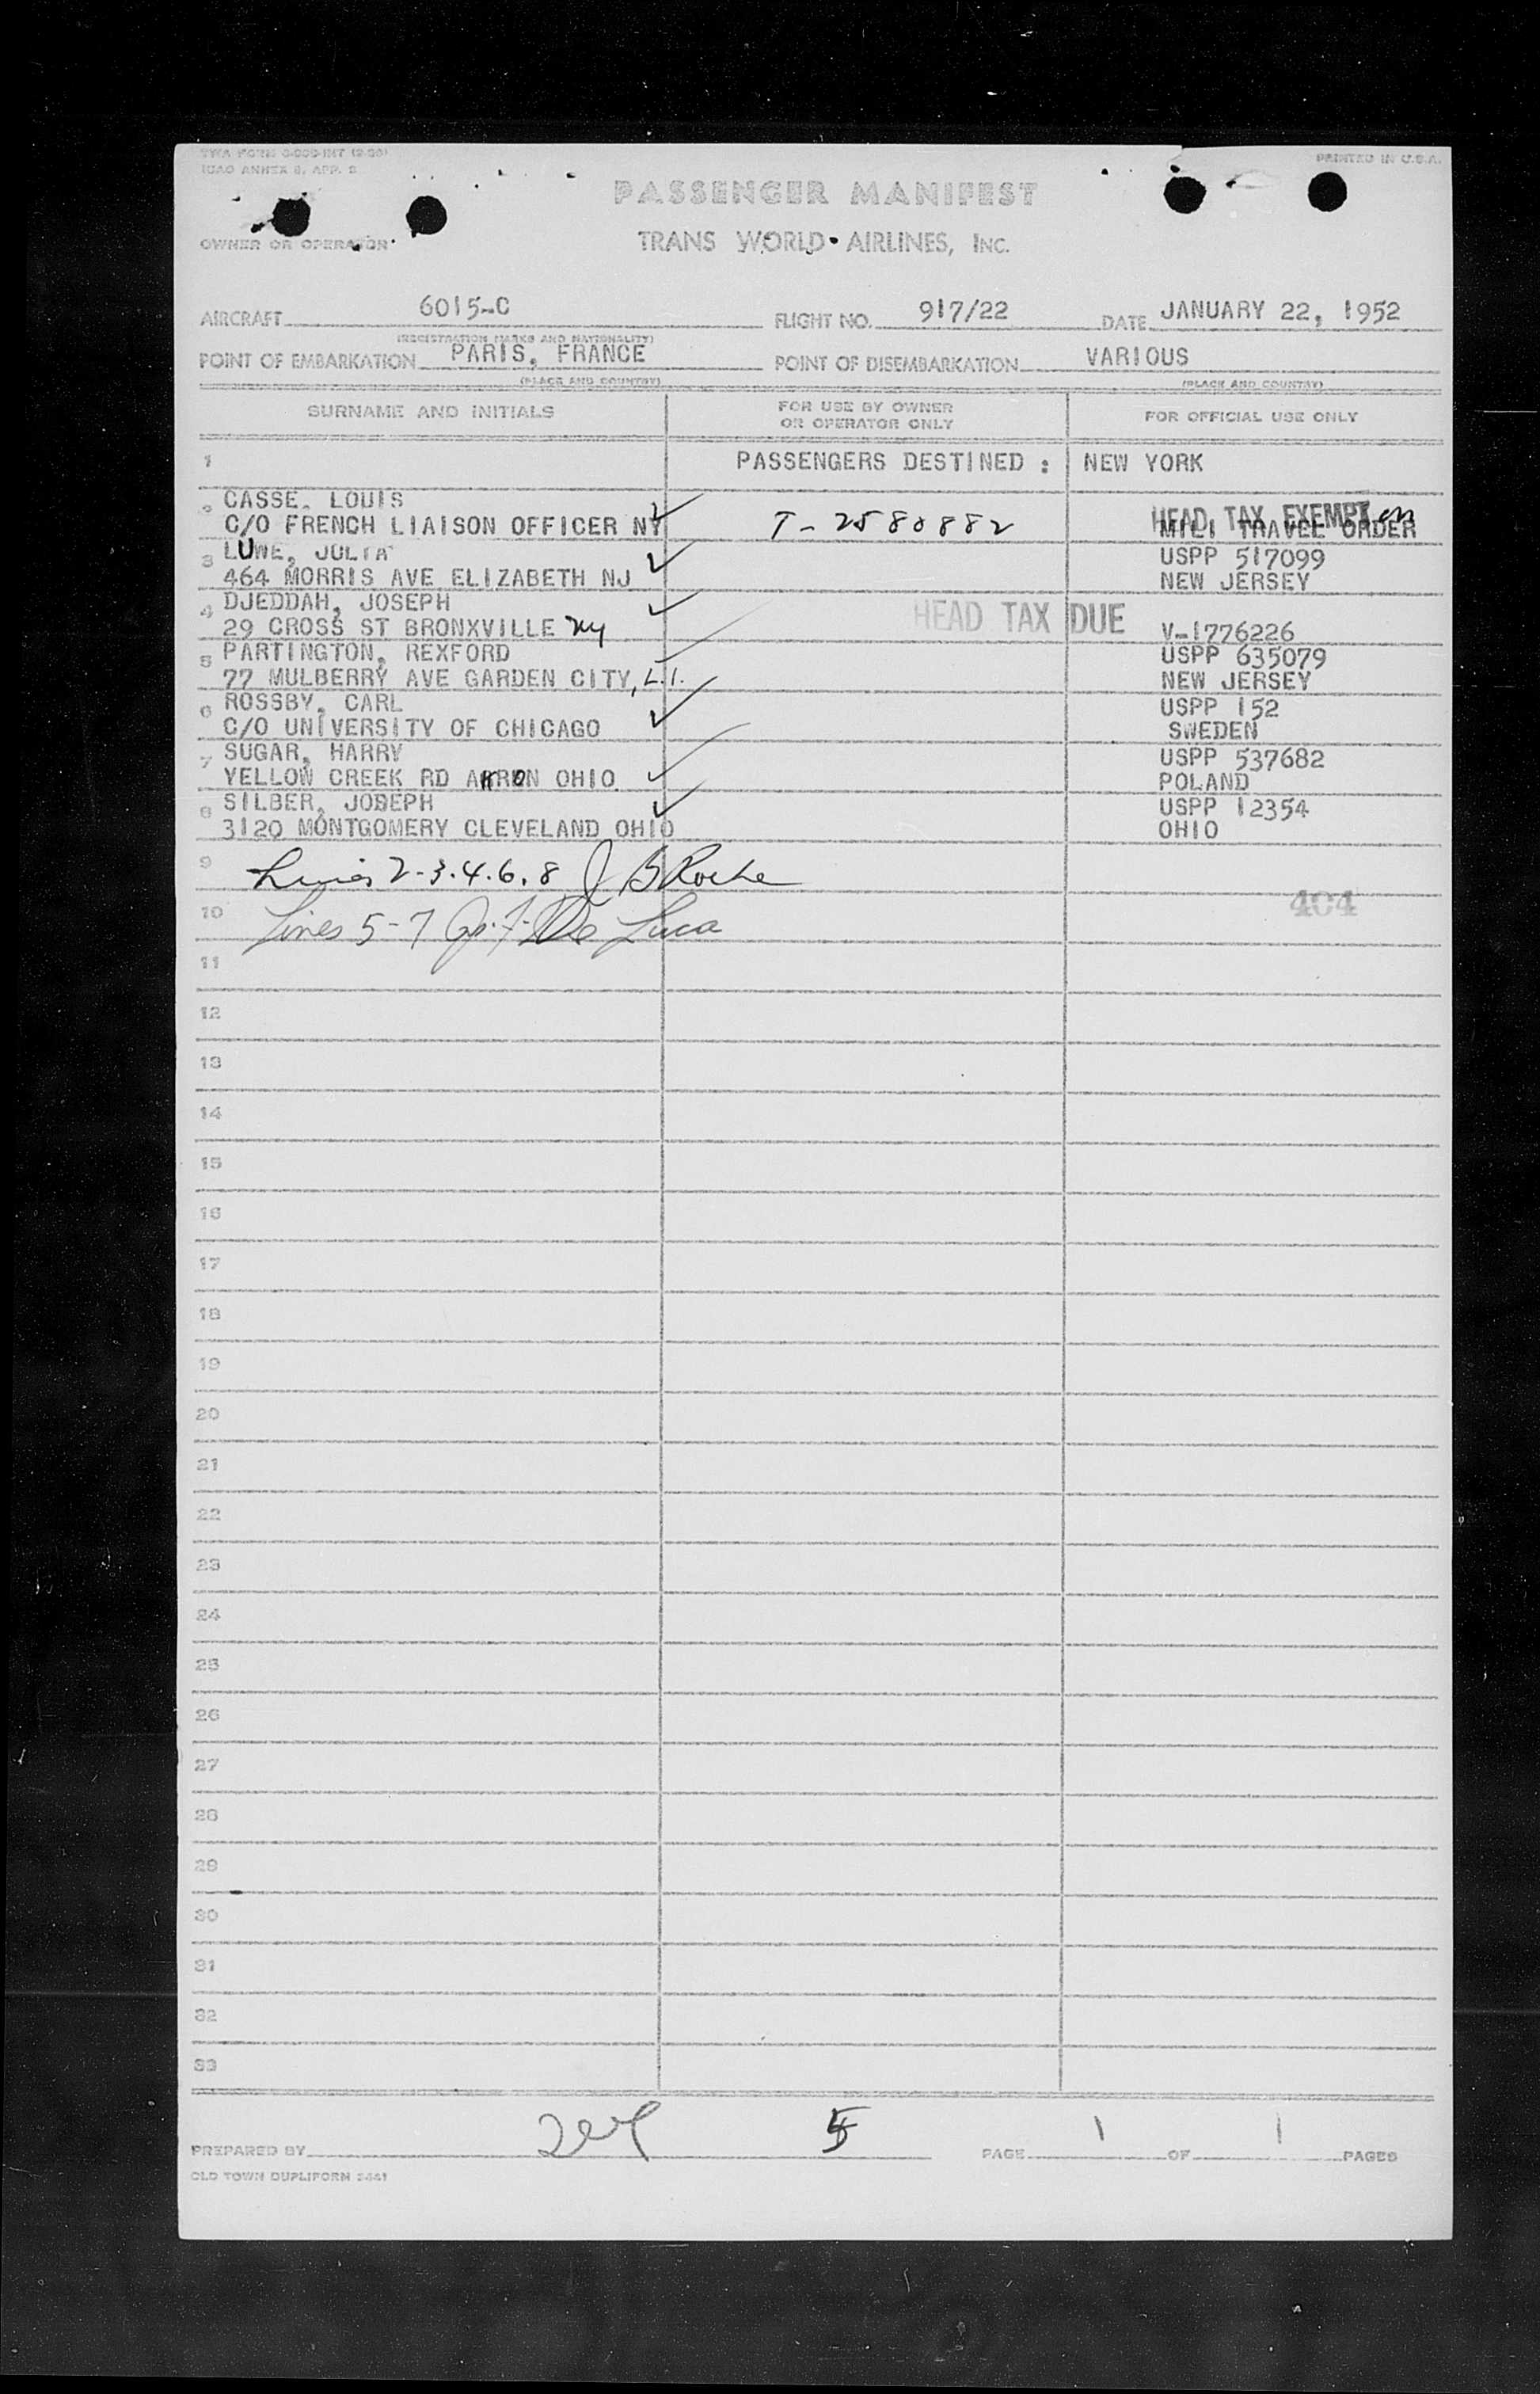 TWA FORM
ICAO ANNEX 9, APP.
PRINTED IN U.S.A.
PASSENGER MANIFEST
OWNER OR OPERATOR
TRANS WORLD AIRLINES, INC.
AIRCRAFT 6015-C FLIGHT NO. 917/22 DATE JANUARY 22, 1952
(REGISTRATION MARKS AND NATIONALITY)
POINT OF EMBARKATION PARIS, FRANCE POINT OF DISEMBARKATION VARIOUS
(PLACE AND COUNTRY) (PLACE AND COUNTRY)
SURNAME AND INITIALS FOR USE BY OWNER OR OPERATOR ONLY FOR OFFICIAL USE ONLY
1 PASSENGERS DESTINED : NEW YORK
2 CASSE, LOUIS HEAD TAX EXEMPT
C/O FRENCH LIAISON OFFICER NY T-2580882 MILI TRAVEL ORDER
3 LUWE, JULIA USPP 517099
464 MORRIS AVE ELIZABETH NJ NEW JERSEY
4 DJEDDAH, JOSEPH HEAD TAX DUE
29 CROSS ST BRONXVILLE NY V-1776226
5 PARTINGTON, REXFORD USPP 635079
77 MULBERRY AVE GARDEN CITY, L.I. NEW JERSEY
6 ROSSBY, CARL USPP 152
C/O UNIVERSITY OF CHICAGO SWEDEN
7 SUGAR, HARRY USPP 537682
YELLOW CREEK RD AKRON OHIO. POLAND
8 SILBER, JOSEPH USPP 12354
3120 MONTGOMERY CLEVELAND OHIO OHIO
9 Lines 2-3.4.6.8 J B Roche
404
10 Lines 5-7 De Luca
11
12
13
14
15
16
17
18
19
20
21
22
23
24
25
26
27
28
29
30
31
32
33
PREPARED BY 5 PAGE 1 OF 1 PAGES
OLD TOWN DUPLIFORM 2441